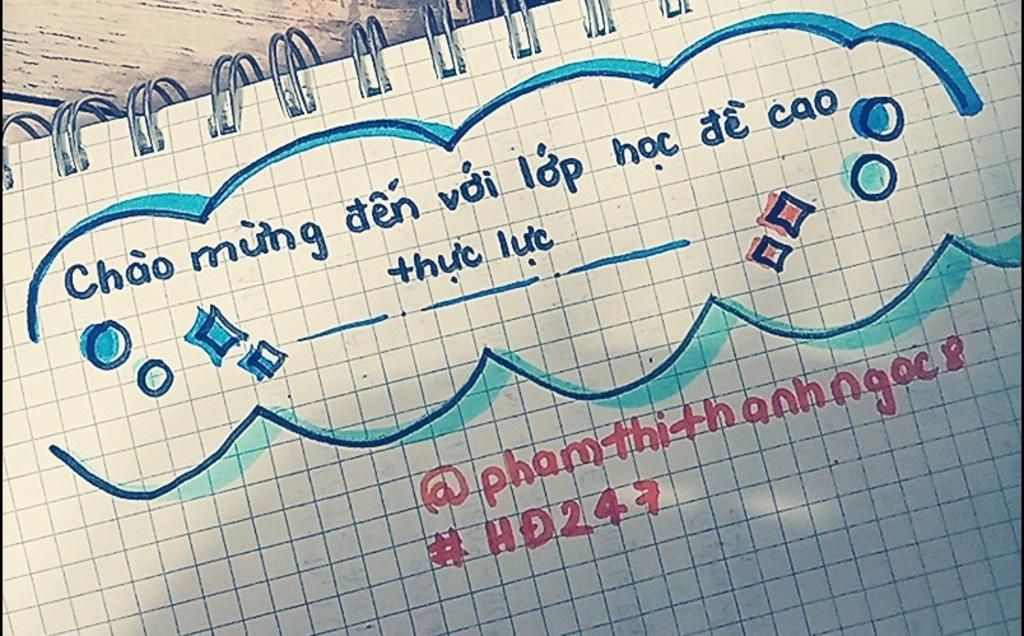 Chào mừng đến với lớp học đề cao
thực lực
@phamthithanhngoc8
#HĐ247